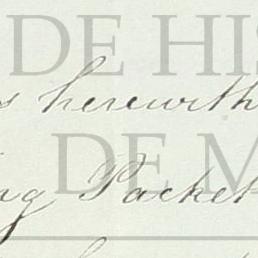 DE HIS
s herewith
DE M
ng Packet